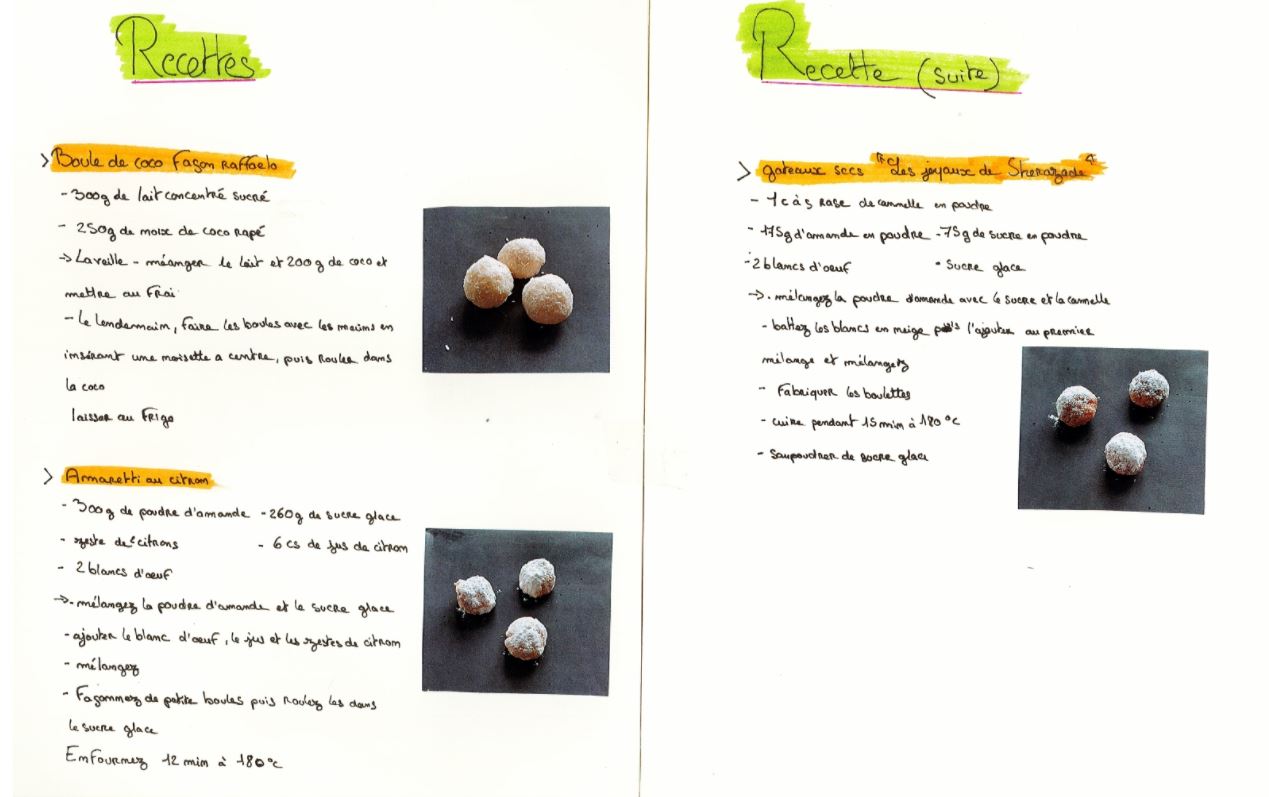 Recettes
> Boule de coco façon Raffaelo
- 300g de lait concentré sucré
- 250g de noix de coco rapé
-> La veille - méanger le lait et 200g de coco et
mettre au frai
- le lendermain, faire les boules avec les mains en
insérant une noisette a centre, puis roules dans
la coco
laisser au frigo
> Amaretti au citron
- 300g de poudre d'amande - 260g de sucre glace
- zeste de citrons - 6 cs de jus de citron
- 2 blancs d'œuf
->. mélangez la poudre d'amande et le sucre glace
- ajouter le blanc d'œuf, le jus et les zestes de citron
- mélangez
- Façonnez de petite boules puis roulez les dans
le sucre glace
Enfournez 12 min à 180°c
Recette (suite)
> gateaux secs "les joyaux de Sherazade"
- 1 c à s rase de cannelle en poudre
- 175g d'amande en poudre - 75g de sucre en poudre
- 2 blancs d'œuf • Sucre glace
->. mélangez la poudre d'amande avec le sucre et la cannelle
- battez les blancs en neige puis l'ajouter au premier
mélange et mélangez
- Fabriquer les boulettes
- cuire pendant 15 min à 180°c
- Saupoudrer de sucre glace